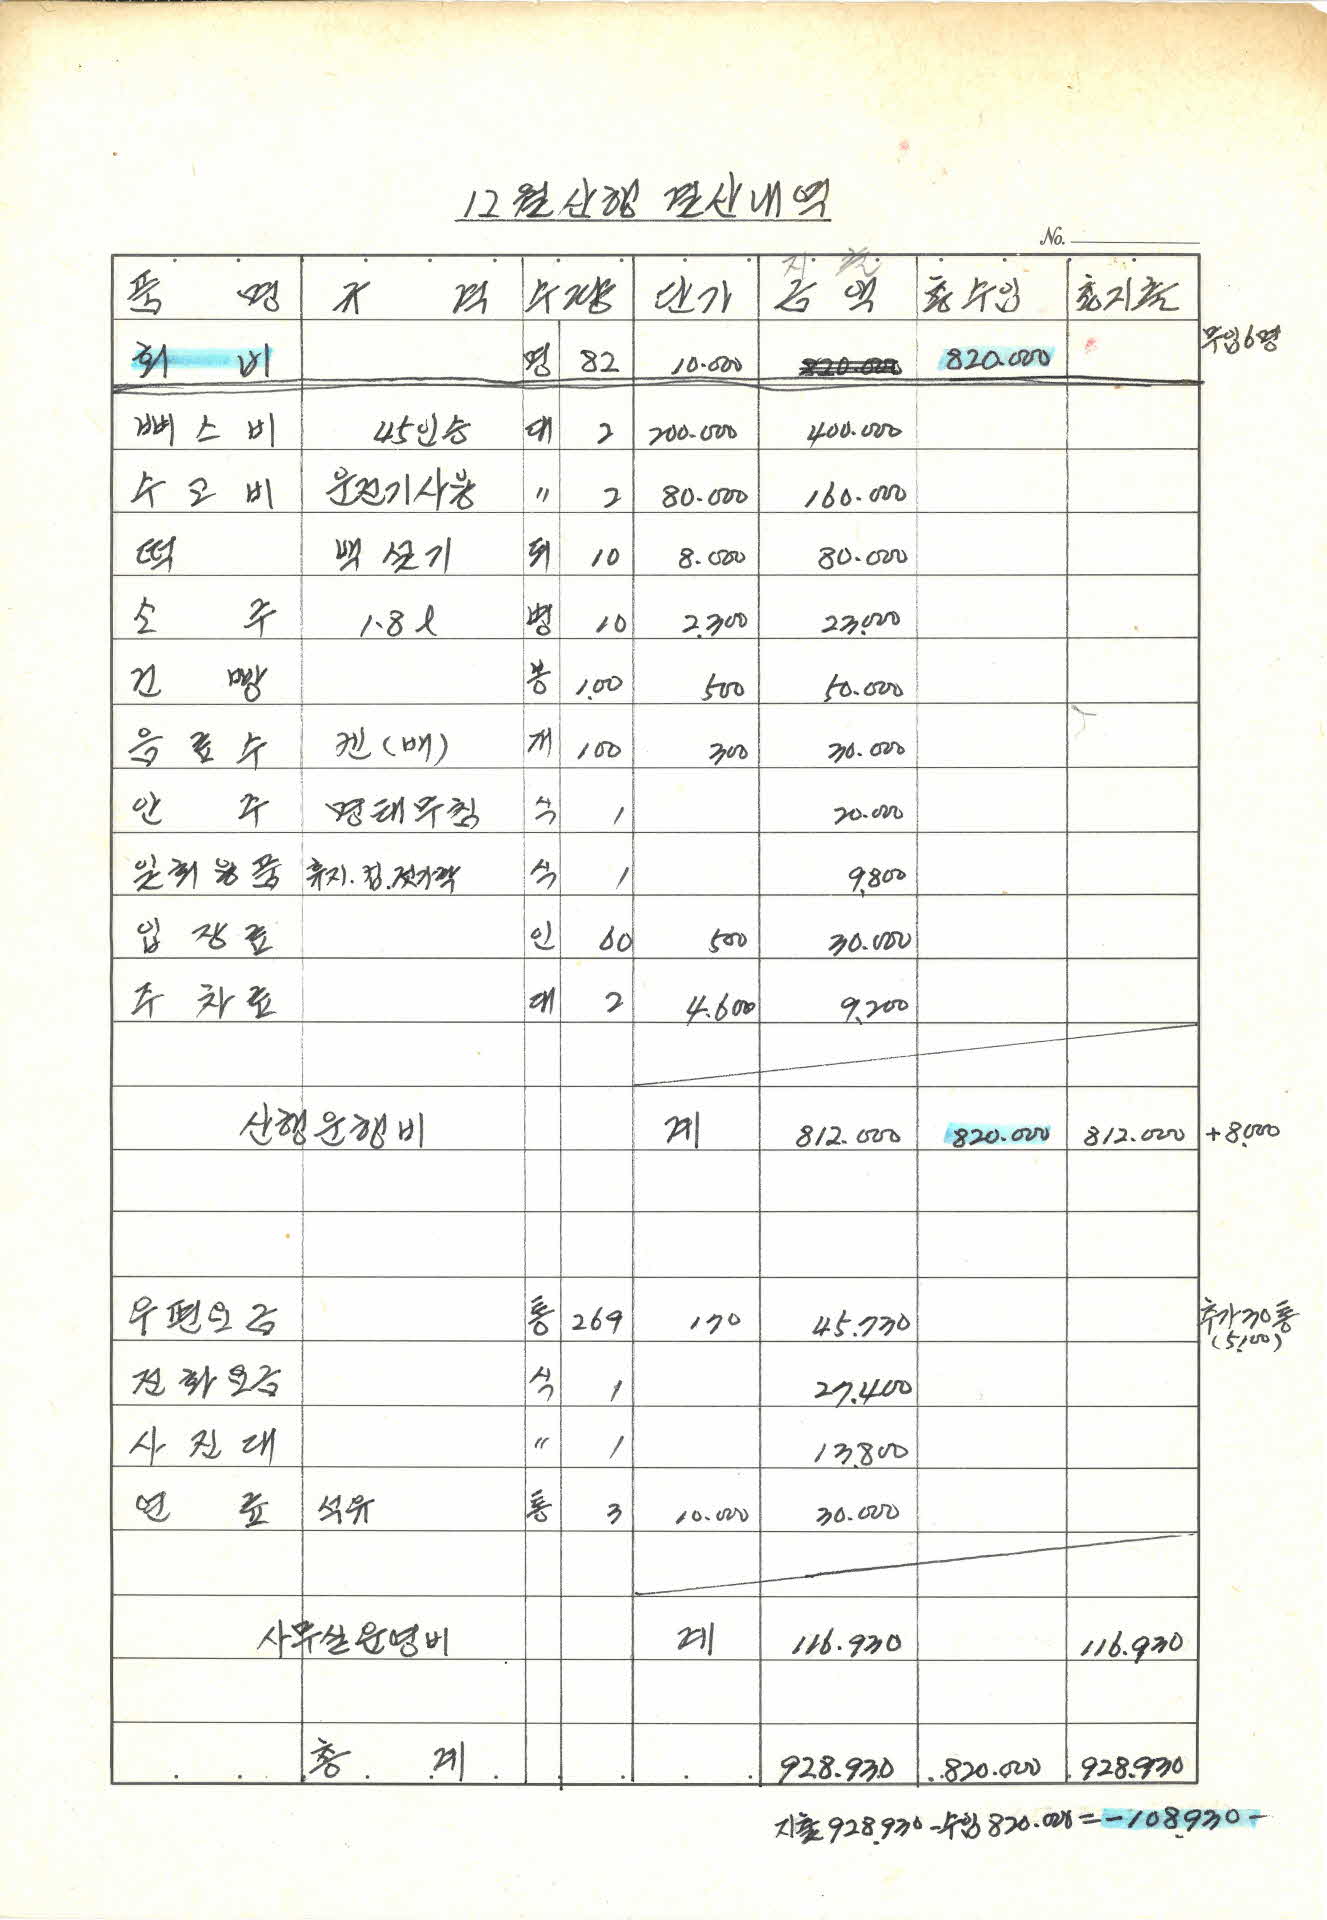 12월 산행 결산내역
No.
품 명 규 격 수량 단가 지출 금액 총수입 총지출
회 비 명 82 10.000 820.000 820.000 무임6명
뻐스비 45인승 대 2 200.000 400.000
수고비 운전기사용 〃 2 80.000 160.000
떡 백설기 되 10 8.000 80.000
소 주 1.8ℓ 병 10 2.300 23.000
건 빵 봉 100 500 50.000
음료수 켄(배) 개 100 300 30.000
안 주 명태무침 식 1 20.000
일회용품 휴지.컵.젓가락 식 1 9.800
입장료 인 60 500 30.000
주차료 대 2 4.600 9.200
산행운행비 계 812.000 820.000 812.000 +8.000
우편요금 통 269 170 45.730 추가30통
(5.100)
전화요금 식 1 27.400
사진대 〃 1 13.800
연 료 석유 통 3 10.000 30.000
사무실운영비 계 116.930 116.930
총 계 928.930 820.000 928.930
지출 928.930 - 수입 820.000 = -108.930-